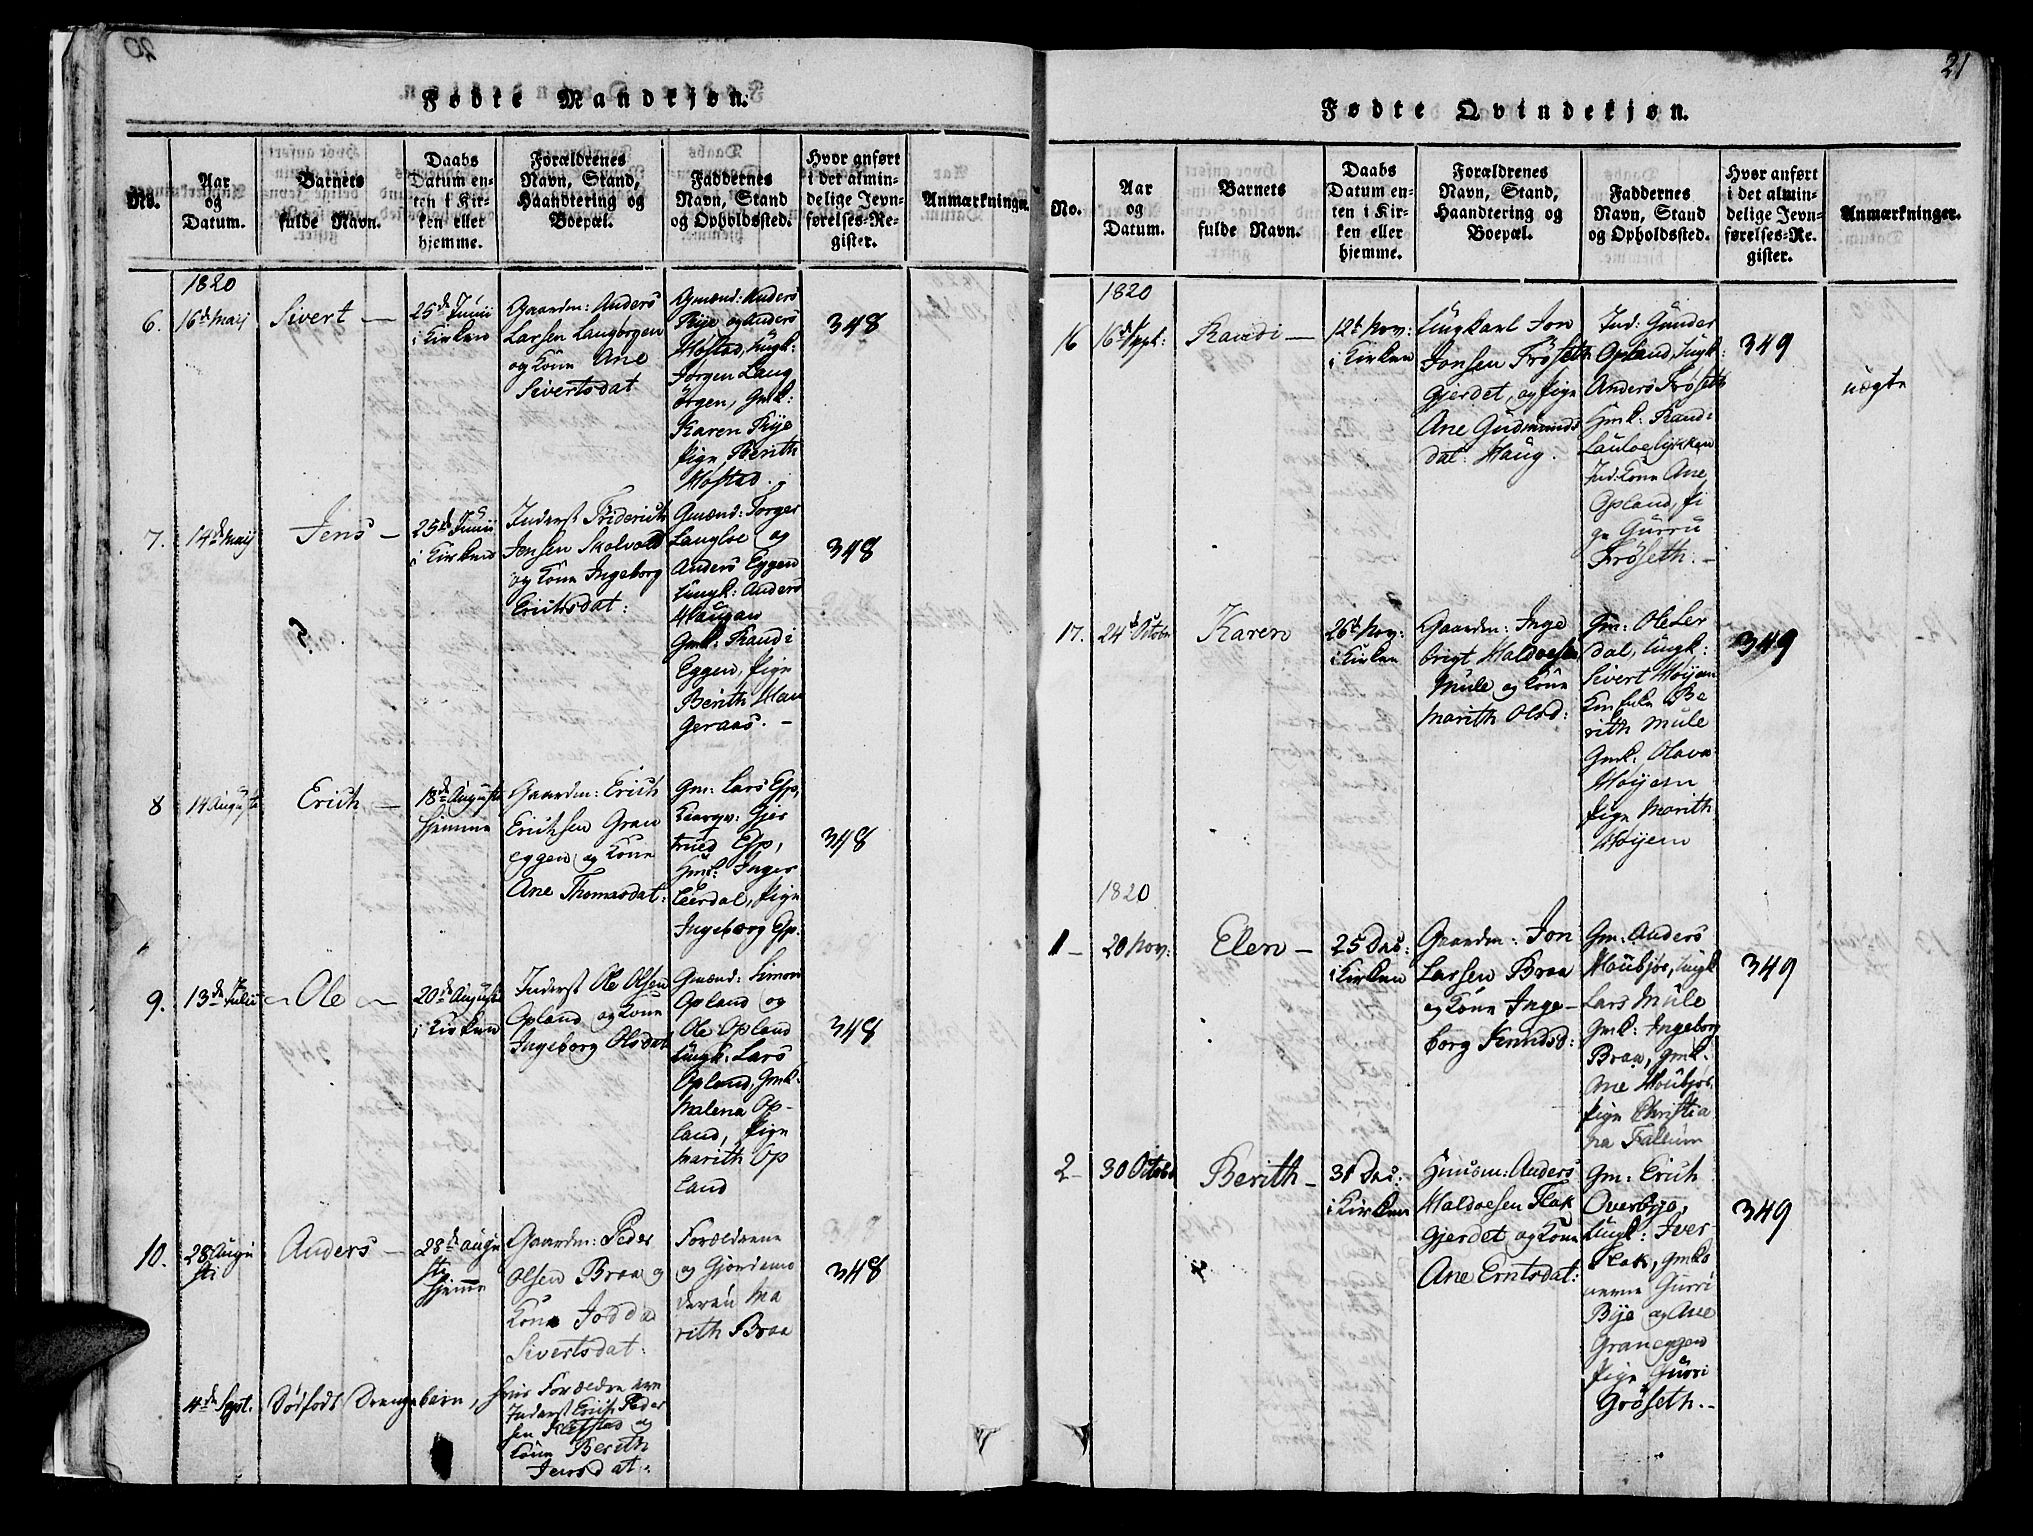 21
Fødte Mandkjøn.
No.
Aar
og
Datum.
Barnets
fulde Navn.
Daabs
Datum en-
ten i Kir-
ken eller
hjemme.
Forældrenes
Navn, Stand,
Haandtering og
Boepæl.
Faddernes
Navn, Stand
og Opholdssted.
Hvor anført
i det almin-
delige Jevn-
førelses-Re-
gister.
Anmærkninger.
1820
6.
16de Maij
Sivert —
25de Junii
i Kirken
Gaardm: Anders
Larsen Langørgen
og Kone Ane
Sivertsdat
Gmænd: Anders
Bye og Anders
Høstad, Ungk:
Jørgen Lang
ørgen, Gmk:
Karen Bye
Pige Berith
Høstad.
348
7.
14de Maij
Jens —
25de Junii
i Kirken
Inderst Friderich
Jensen Skolvold
og Kone Ingeborg
Erichsdat:
Gmænd: Torger
Langloe og
Anders Eggen
Ungk: Anders
Haugan
Gmk: Randi
Eggen, Pige
Berith Hau
geraas. —
348
8
14 Augusti
Erich —
18de Augusti
hjemme
Gaardm: Erich
Erichsen Gran
eggen og Kone
Ane Thomasdat:
Gm: Lars Esp,
Kaargv: Gjer
trued Esp,
Gmk: Inger
Leerdal, Pige
Ingeborg Esp.
348
9.
13de Julii
Ole
20de Augusti
i Kirken
Inderst Ole Olsen
Opland og Kone
Ingeborg Olsdat
Gmænd: Simon
Opland og
Ole Opland
Ungk: Lars
Opland, Gmk.
Malena Op-
land, Pige
Marith Op
land
348
10.
28 Augu
sti
Anders —
28de Augu
sti
hjemme
Gaardm: Peder
Olsen Braa og
Kone Jodda
Sivertsdat:
Forældrene
og Gjordemo
deren Ma
rith Braa
348
4de Sept.
Dødfødt Drengebarn, hvis Forældre ere
Inderst Erich Peder
sen Kletstad og
Kone Berith
Jensdat:
Fødte Qvindekjøn.
No.
Aar
og
Datum.
Barnets
fulde Navn.
Daabs
Datum en-
ten i Kir-
ken eller
hjemme.
Forældrenes
Navn, Stand,
Haandtering og
Boepæl.
Faddernes
Navn, Stand
og Opholdssted.
Hvor anført
i det almin-
delige Jevn-
førelses-Re-
gister.
Anmærkninger.
1820
16
16de Sept:
Randi —
12te Nov:
i Kirken
Ungkarl Jon
Jonsen Frøseth
Gjerdet, og Pige
Ane Gudmunds
dat: Haug.
Ind: Gunder
Opland, Ungk:
Anders Frøseth
Gmk: Randi
Lauloelykken
Ind:Kone Ane
Opland, Pi
ge Gurru
Frøseth. —
349
uægte
17.
24de Octobr
Karen
26de Nov:
i Kirken
Gaardm: Inge
brigt Haldorsen
Mule og Kone
Marith Olsd:
Gm: Ole Ler
dal, Ungk:
Sivert Høijem
Be
rith Mule
Gmk: Olava
Høijem
Pige Marith
Høijem
349
1820
1 —
20 Nov:
Elen —
25 Dec:
i Kirken
Gaardm: Jon
Larsen Braa
og Kone Inge-
borg Knudsd:
Gm: Anders
Houbjør, Ungk
Lars Mule
Gmk: Ingeborg
Braa, Gmk.
Ane Houbjør.
Pige Christia
na Fallum
349
2 —
30 Octobr
Berith —
31 Dec:
i Kirken
Huusm: Anders
Haldorsen Flak
Gjerdet og Kone
Ane Erntsdat:
Gm: Erich
Overbjø,
Ungk: Iver
Flak, Gmko
nerne Gurri
Bye og Ane
Graneggen
Pige Gurri
Grøseth. —
349